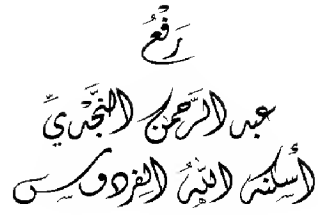 رَفْعُ
عبد الرَّحمن النَّجْدِيّ
أسكنه اللّٰهُ الفردوس